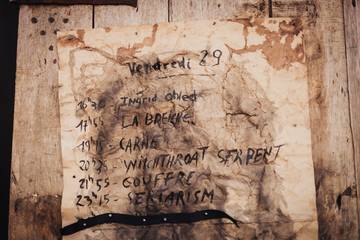 Vendredi 29
16h30 Ingrid Obled
17h55 LA BREICHE
19h15 - CARNE
20h35 - WITCHTHROAT SERPENT
21h55 - GOUFFRE
23h15 - SEKTARISM